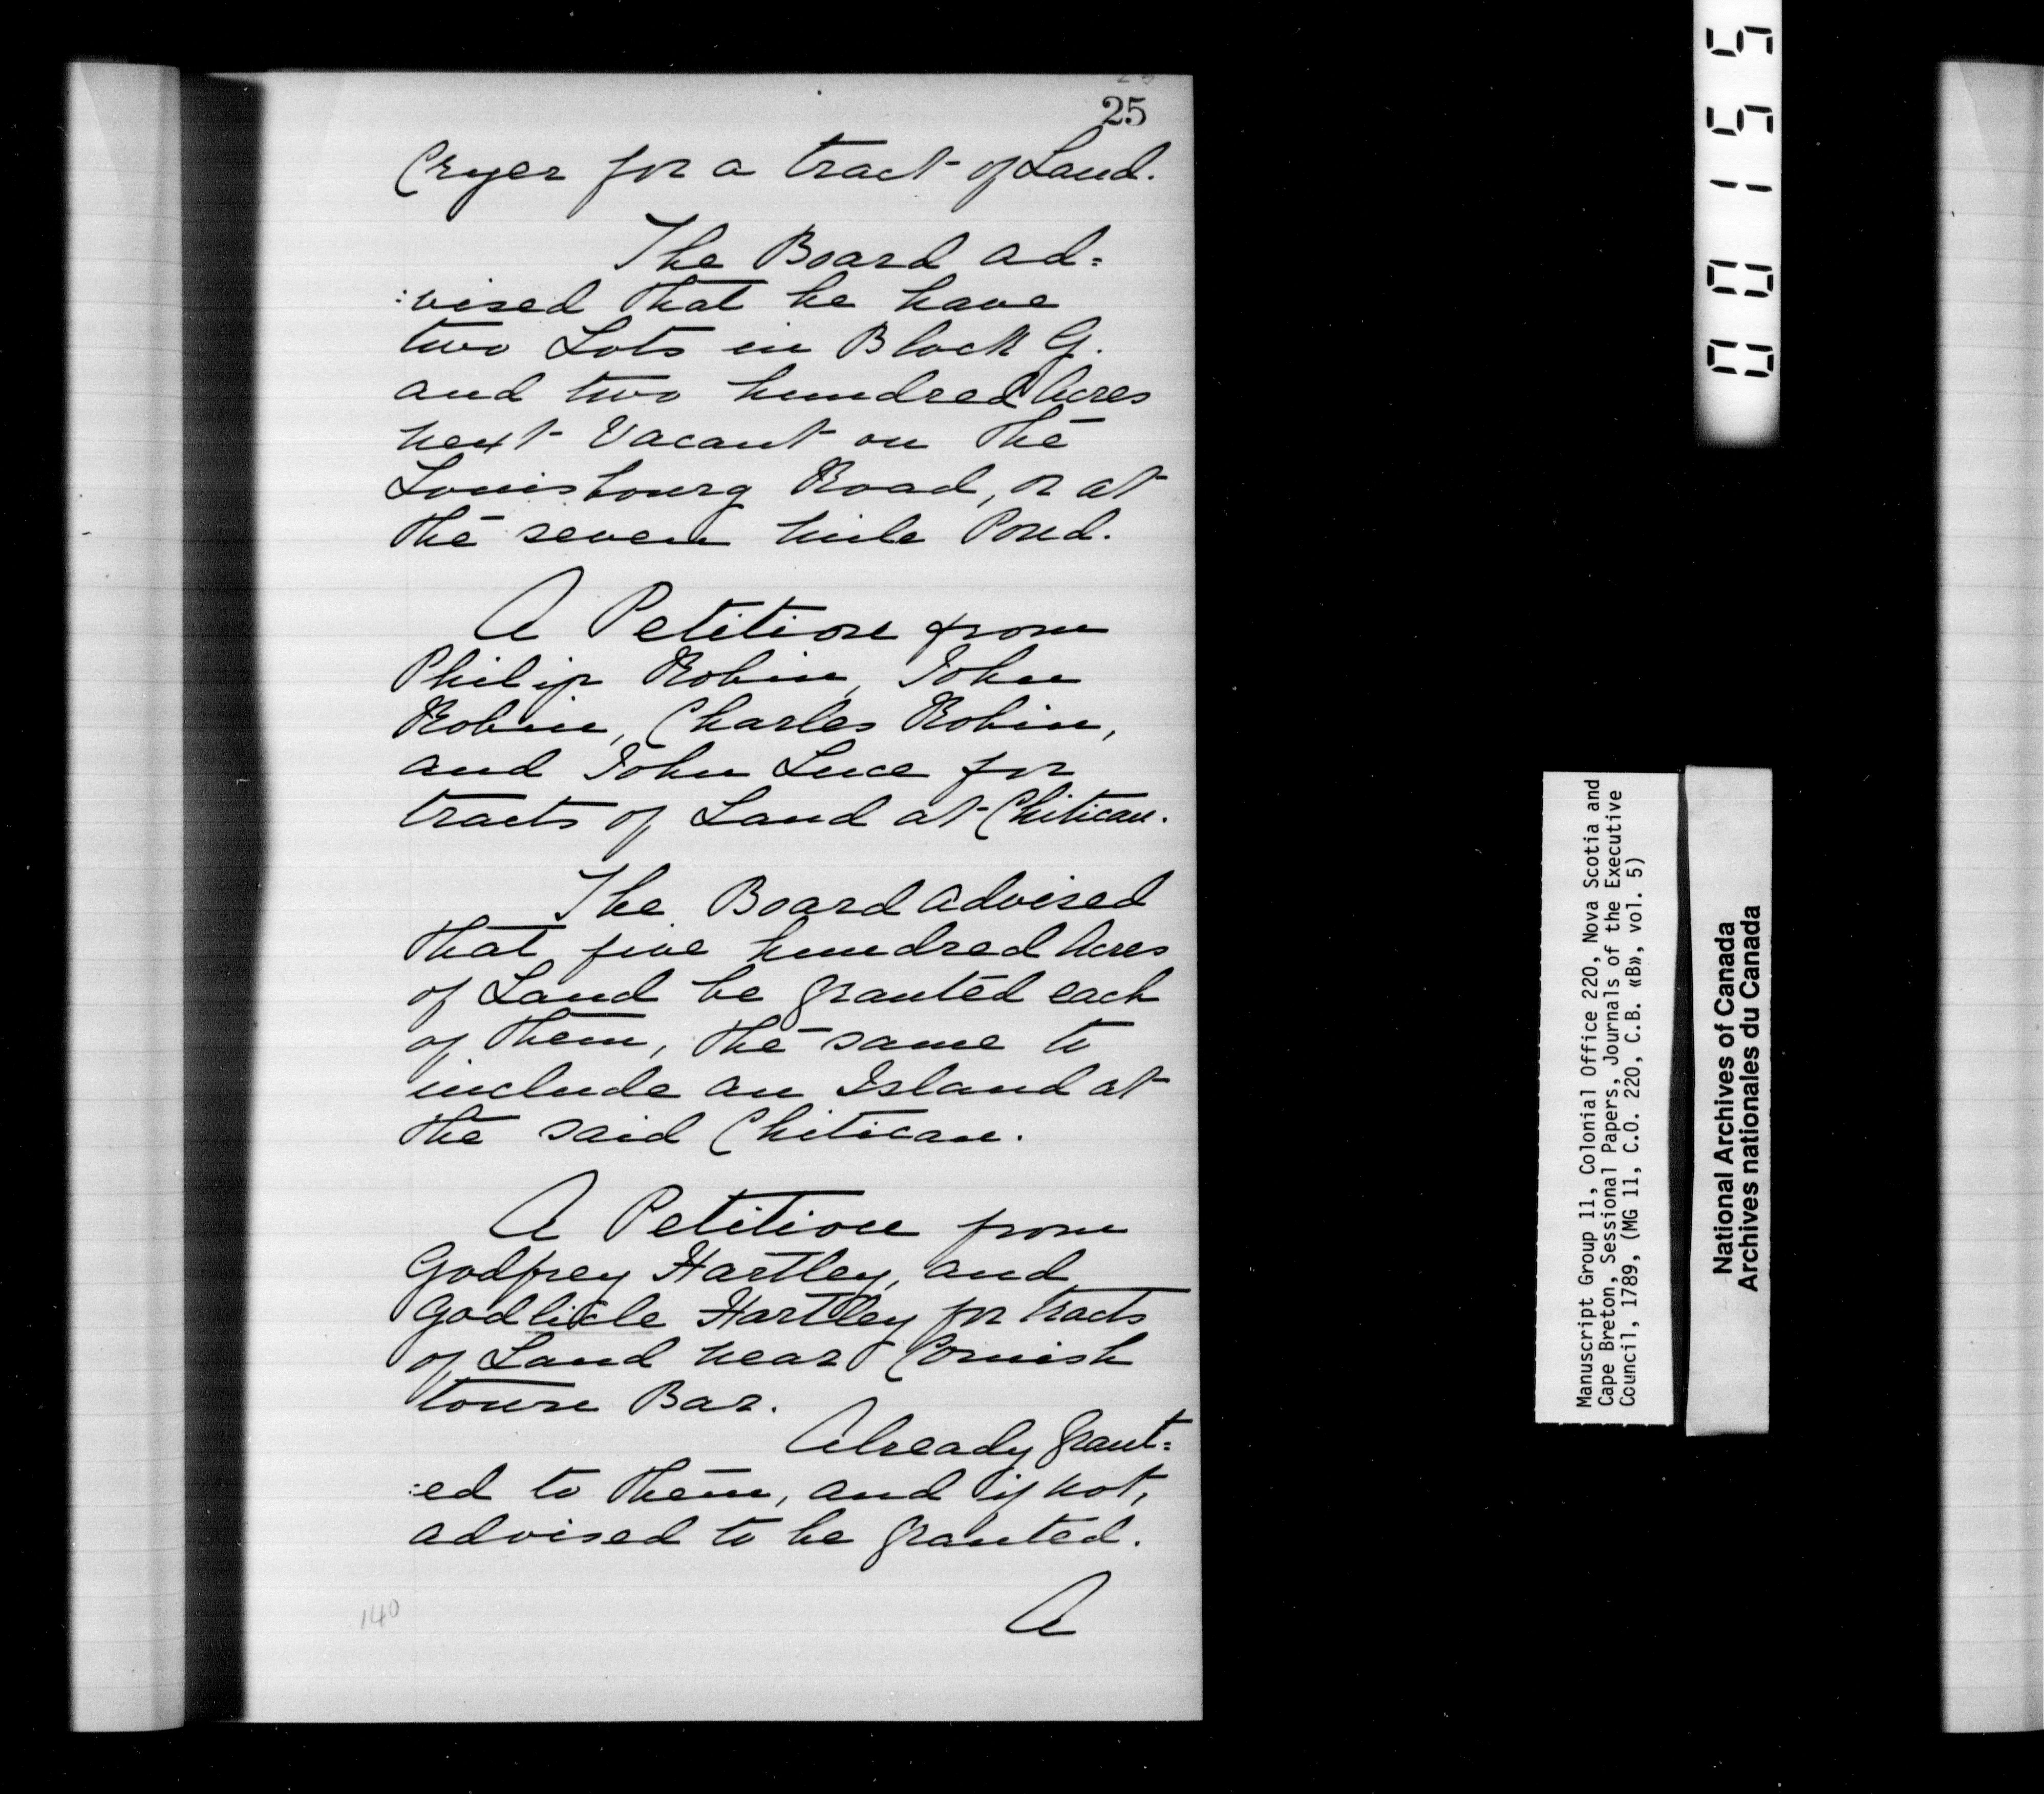 25
Cryer for a tract of Land.
The Board ad=
:vised that he have
two Lots in Block G.
and two hundred Acres
next Vacant on the
Louisbourg Road, or at
the seven mile Pond.
A Petition from
Philip Robin, John
Robin, Charles Robin,
and John Luce for
tracts of Land at Chitican.
The Board advised
that five hundred Acres
of Land be granted each
of them, the same to
include an Island at
the said Chitican.
A Petition from
Godfrey Hartley, and
Hartley for tracts
of Land near Cornish
town Bar.
Already grant=
:ed to them, and if not,
advised to be granted.
A
140
00155
Manuscript Group 11, Colonial Office 220, Nova Scotia and
Cape Breton, Sessional Papers, Journals of the Executive
Council, 1789, (MG 11, C.O. 220, C.B. «B», vol. 5)
National Archives of Canada
Archives nationales du Canada